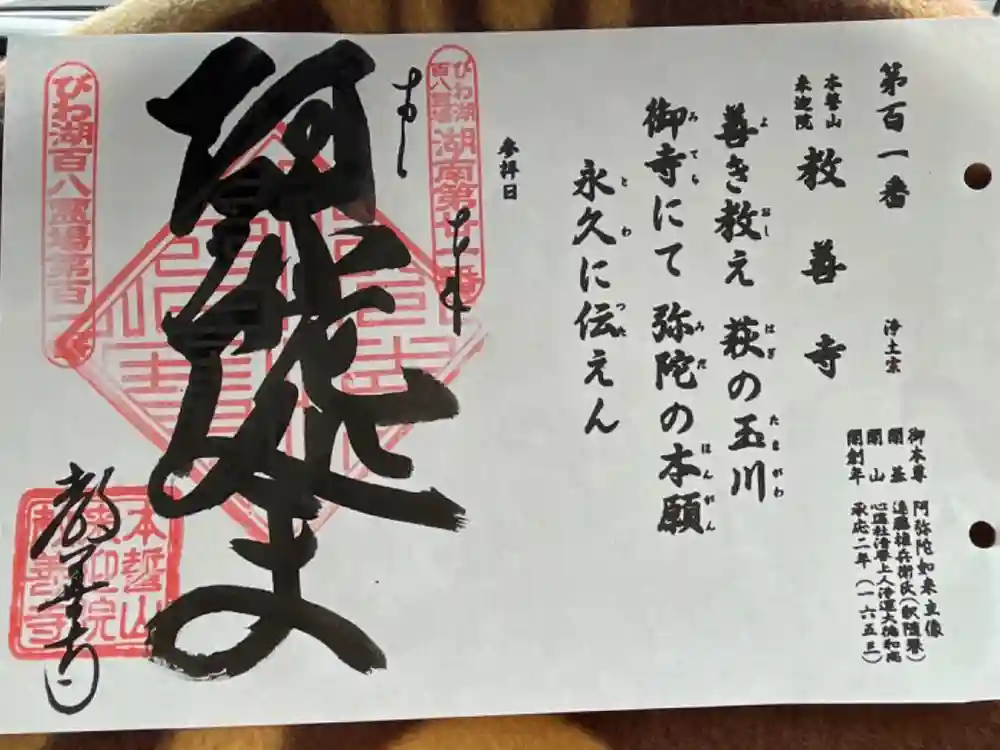 第百一番
本誓山
来迎院
教善寺
浄土宗
御本尊 阿弥陀如来立像
開基 遠藤権兵衛氏
開山
開創年 承応二年(一六五三)
善き教え 萩の玉川
御寺にて 弥陀の本願
永久に伝えん
参拝日
びわ湖
百八霊場
湖南第廿一番
阿弥陀
びわ湖百八霊場第百一番
本誓山
来迎院
教善寺
教善寺